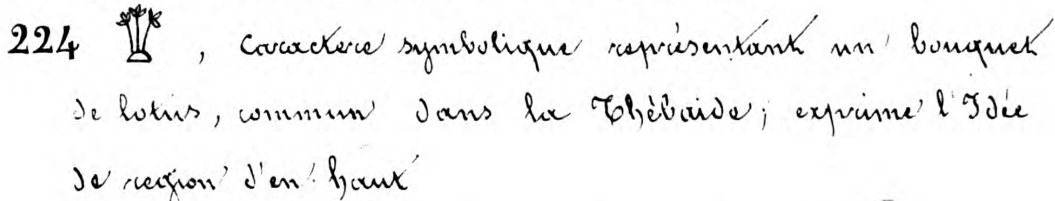 224 , Caractere symbolique représentant un bouquet
de lotus, commun dans la Thébaide; exprime l'Idée
de region d'en haut